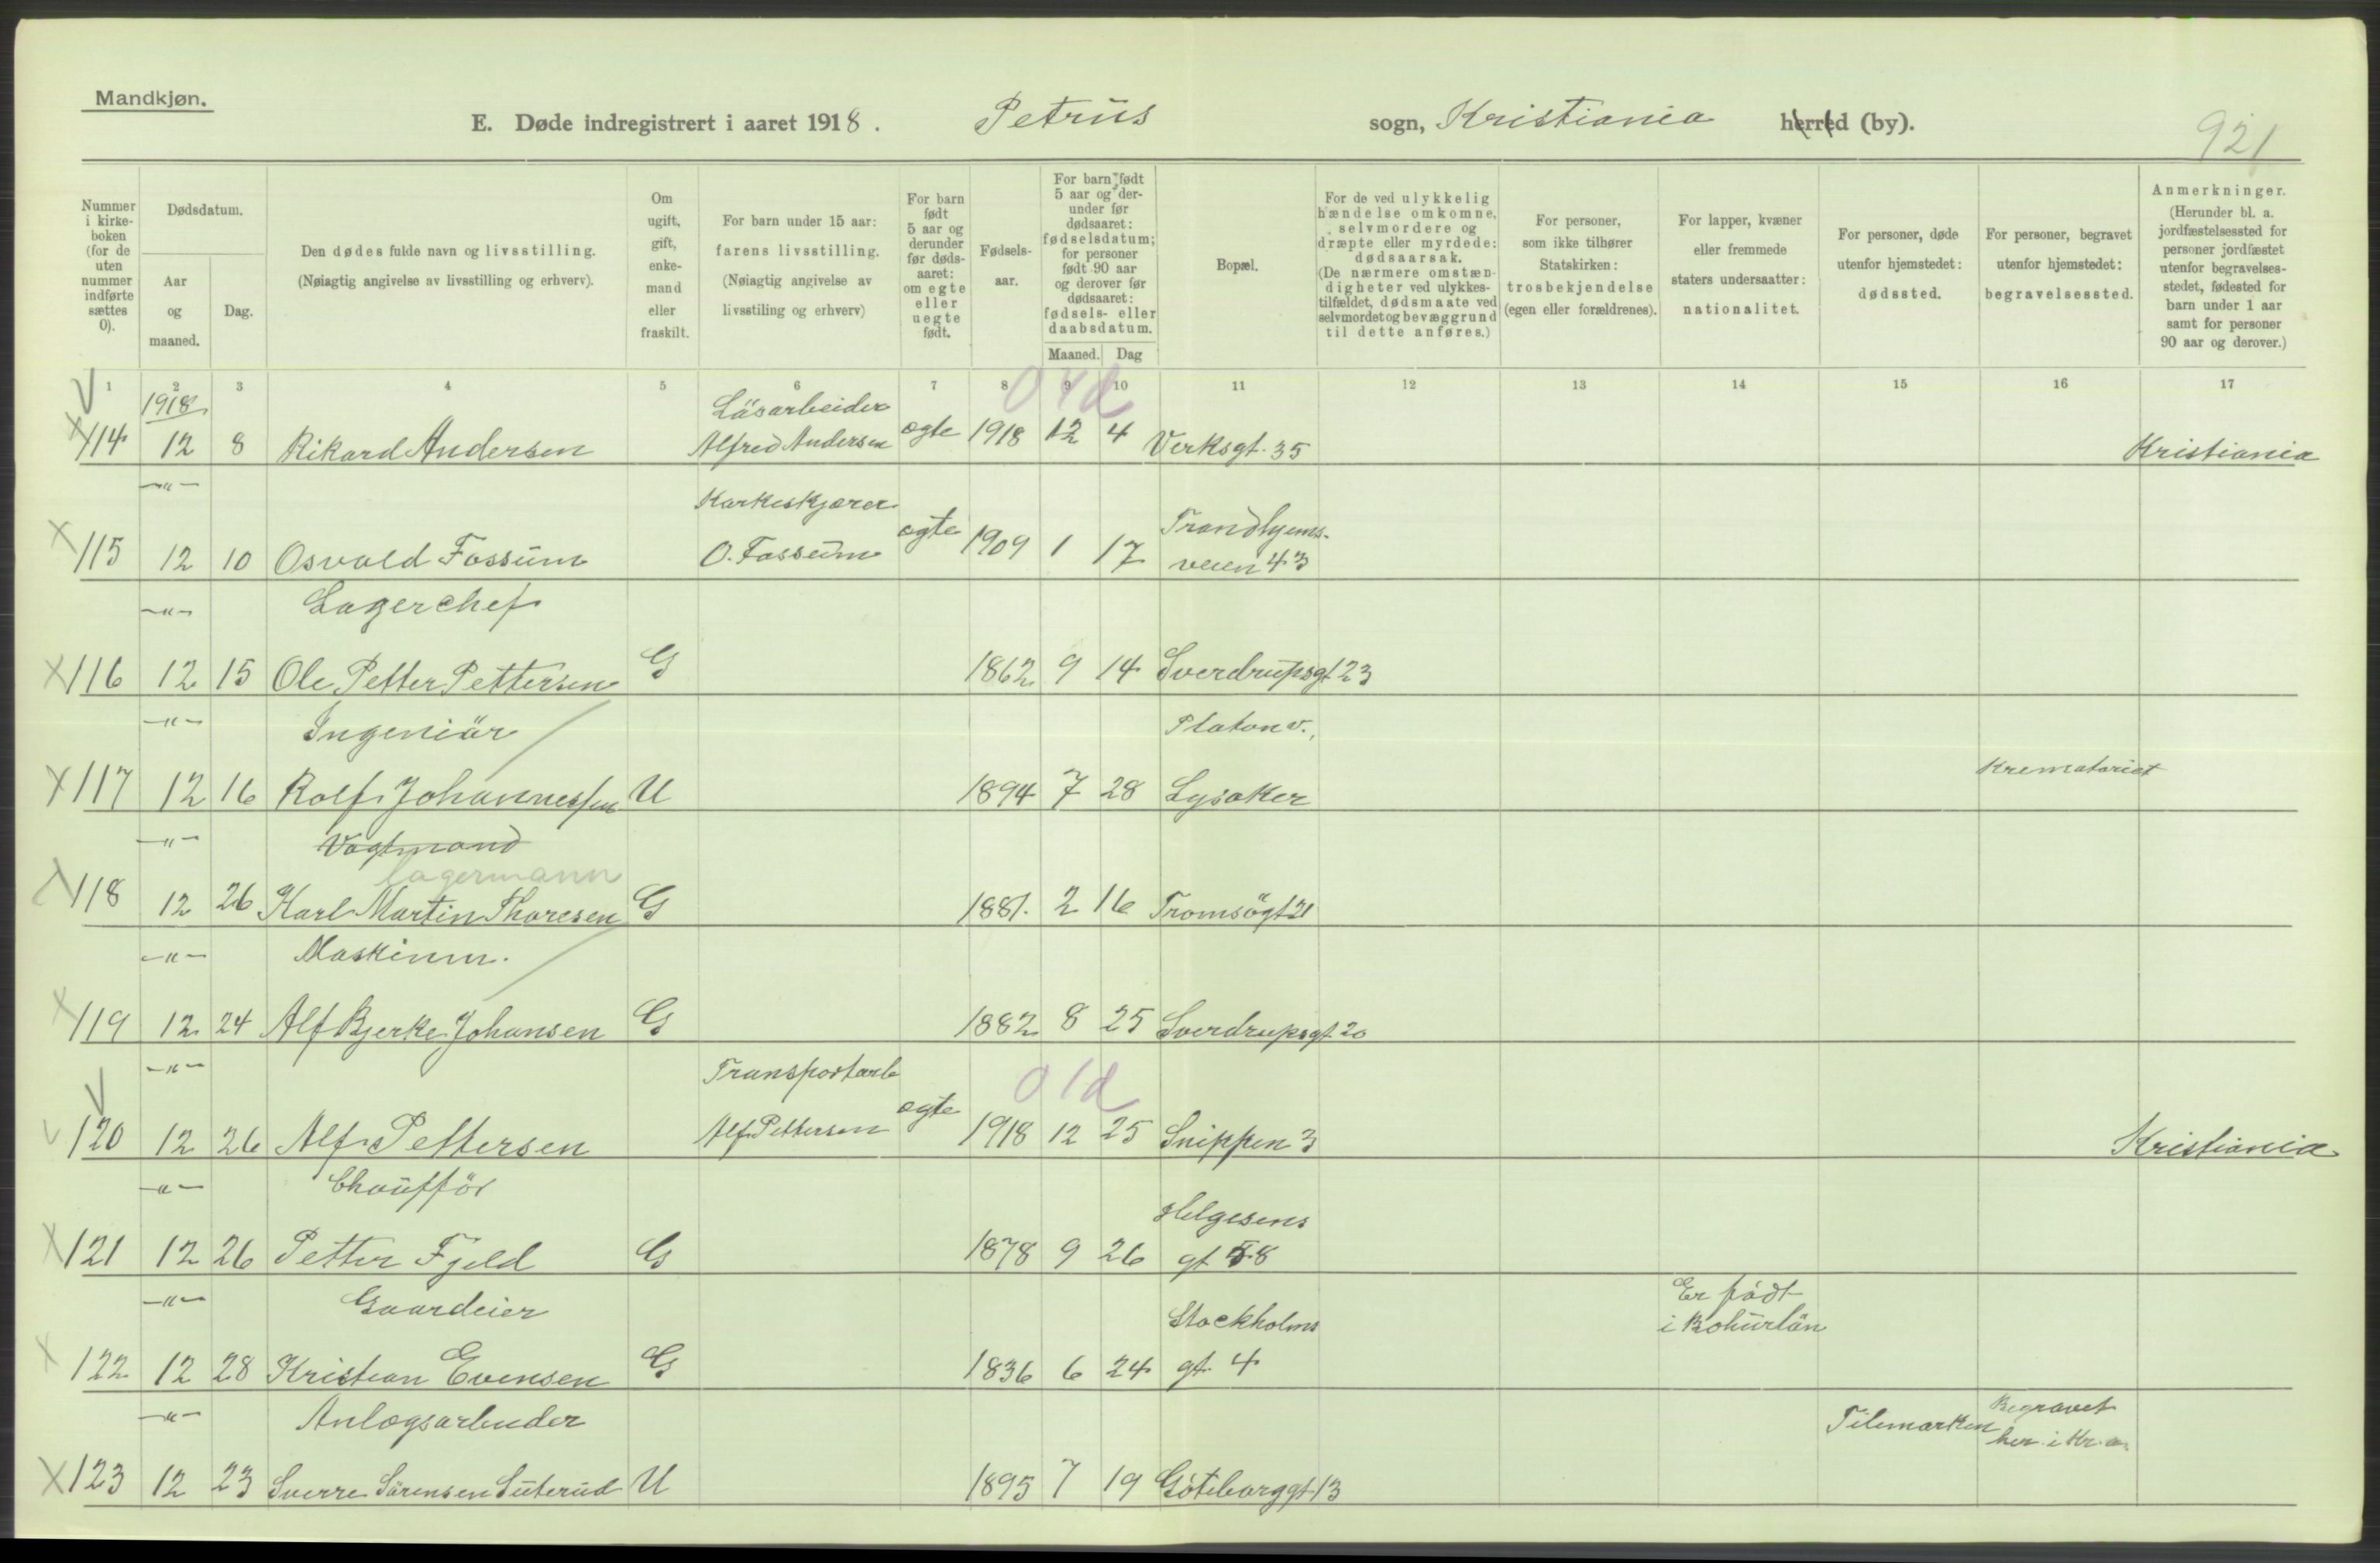 Mandkjøn.
E. Døde indregistrert i aaret 1918. Petrus sogn, Kristiania herred (by).
921
Nummer i kirkeboken (for de uten nummer indførte sættes 0).
Dødsdatum.
Aar og maaned.
Dag.
Den dødes fulde navn og livsstilling.
(Nøiagtig angivelse av livsstilling og erhverv).
Om ugift, gift, enkemand eller fraskilt.
For barn under 15 aar: farens livsstilling.
(Nøiagtig angivelse av livsstiling og erhverv)
For barn født 5 aar og derunder før dødsaaret: om egte eller uegte født.
Fødselsaar.
For barn født 5 aar og derunder før dødsaaret: fødselsdatum; for personer født 90 aar og derover før dødsaaret: fødsels- eller daabsdatum.
Maaned. Dag
Bopæl.
For de ved ulykkelig hændelse omkomne, selvmordere og dræpte eller myrdede: dødsaarsak.
(De nærmere omstændigheter ved ulykkestilfældet, dødsmaate ved selvmordet og bevæggrund til dette anføres.)
For personer, som ikke tilhører Statskirken: trosbekjendelse (egen eller forældrenes).
For lapper, kvæner eller fremmede staters undersaatter: nationalitet.
For personer, døde utenfor hjemstedet: dødssted.
For personer, begravet utenfor hjemstedet: begravelsessted.
Anmerkninger.
(Herunder bl. a. jordfæstelsessted for personer jordfæstet utenfor begravelsesstedet, fødested for barn under 1 aar samt for personer 90 aar og derover.)
1 2 3 4 5 6 7 8 9 10 11 12 13 14 15 16 17
1918 Läsarbeider
114 12 8 Rikard Andersen Alfred Andersen egte 1918 12 4 Verksgt. 35 Kristiania
-"- Korkeskjærer Trondhjems-
115 12 10 Osvald Fossum O. Fossum egte 1909 1 17 veien 43
-"- Lagerchef
116 12 15 Ole Petter Pettersen G 1862 9 14 Sverdrupsgt 23
-"- Ingeniör Platonv.,
117 12 16 Rolf Johannessen U 1894 7 28 Lysaker Krematoriet
-"- Vagtmand
lagermann
118 12 26 Karl Martin Thoresen G 1881. 2 16 Tromsögt 21
-"- Maskinm.
119 12 24 Alf Bjerke Johansen G 1882 8 25 Sverdrupsgt. 20
-"- Transportarb 01d
120 12 26 Alf Pettersen Alf Pettersen egte 1918 12 25 Snippen 3 Kristiania
-"- Chaufför Helgesens
121 12 26 Petter Fjeld G 1878 9 26 gt 58
-"- Gaardeier Stockholms Er födt i Bohuslän
122 12 28 Kristian Evensen G 1836 6 24 gt. 4
-"- Anlægsarbeider Tilemarken Begravet her i Kr.a.
123 12 23 Sverre Sörensen Suterud U 1895 7 19 Göteborggt. 13